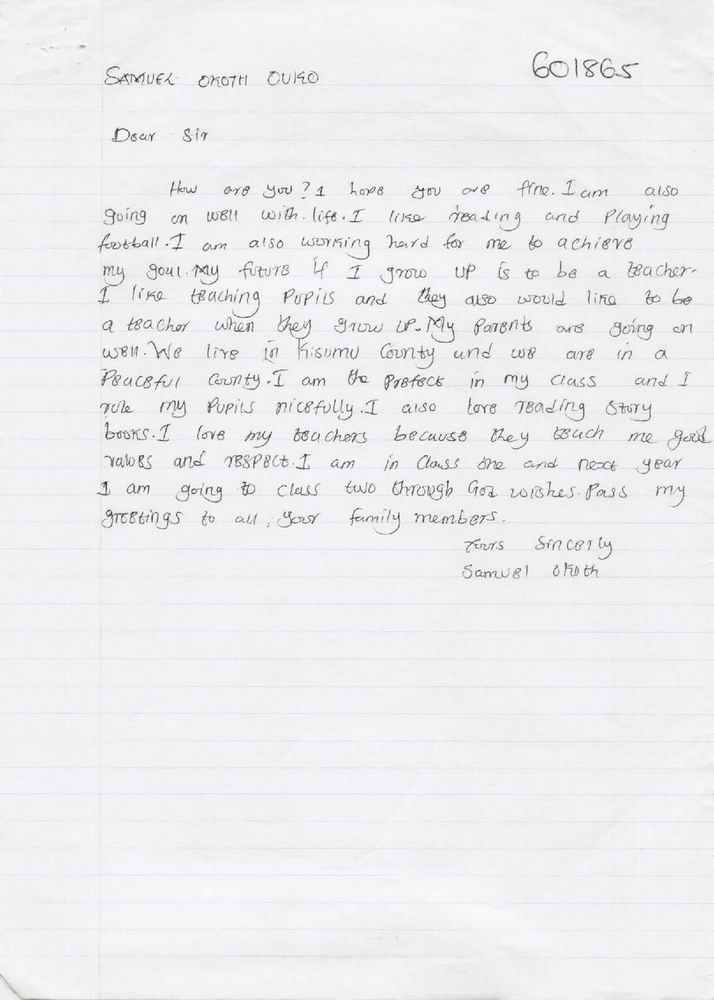 601865
SAMUEL OKOTH OUKO
Dear Sir
How are you? I hope you are fine. I am also
going on well with. life. I like reading and Playing
football. I am also working hard for me to achieve
my goal. My future if I grow up is to be a teacher.
I like teaching Pupils and they also would like to be
a teacher when they grow up. My Parents are going on
well. We live in Kisumu County and we are in a
Peaceful County. I am the Prefect in my class and I
rule my Pupils nicefully. I also love reading story
books. I love my teachers because they teach me good
values and respect. I am in Class one and next year
I am going to class two through God wishes. Pass my
greetings to all, your family members.
Yours Sincerly
Samuel Okoth